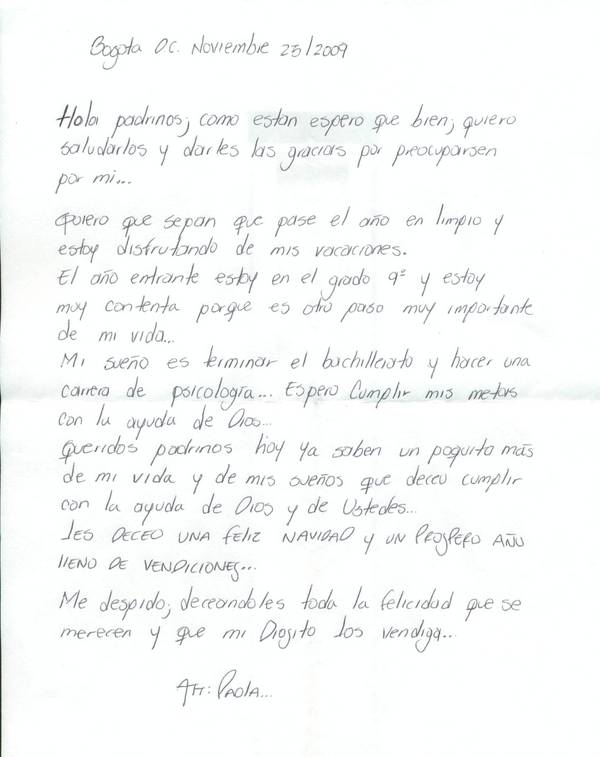 Bogota DC. Noviembre 25/2009
Hola padrinos; como estan espero que bien; quiero
saludarlos y darles las gracias por preocuparsen
por mi...
Quiero que sepan que pase el año en limpio y
estoy disfrutando de mis vacaciones.
El año entrante estoy en el grado 9º y estoy
muy contenta porque es otro paso muy importante
de mi vida...
Mi sueño es terminar el bachillerato y hacer una
carrera de psicología... Espero Cumplir mis metas
con la ayuda de Dios...
Queridos padrinos hoy ya saben un poquito más
de mi vida y de mis sueños que deceo cumplir
con la ayuda de Dios y de Ustedes...
LES DECEO UNA FELIZ NAVIDAD y UN PROSPERO AÑO
LLENO DE VENDICIONES...
Me despido; deceandoles toda la felicidad que se
merecen y que mi Diosito los vendiga...
Att: PAOLA...